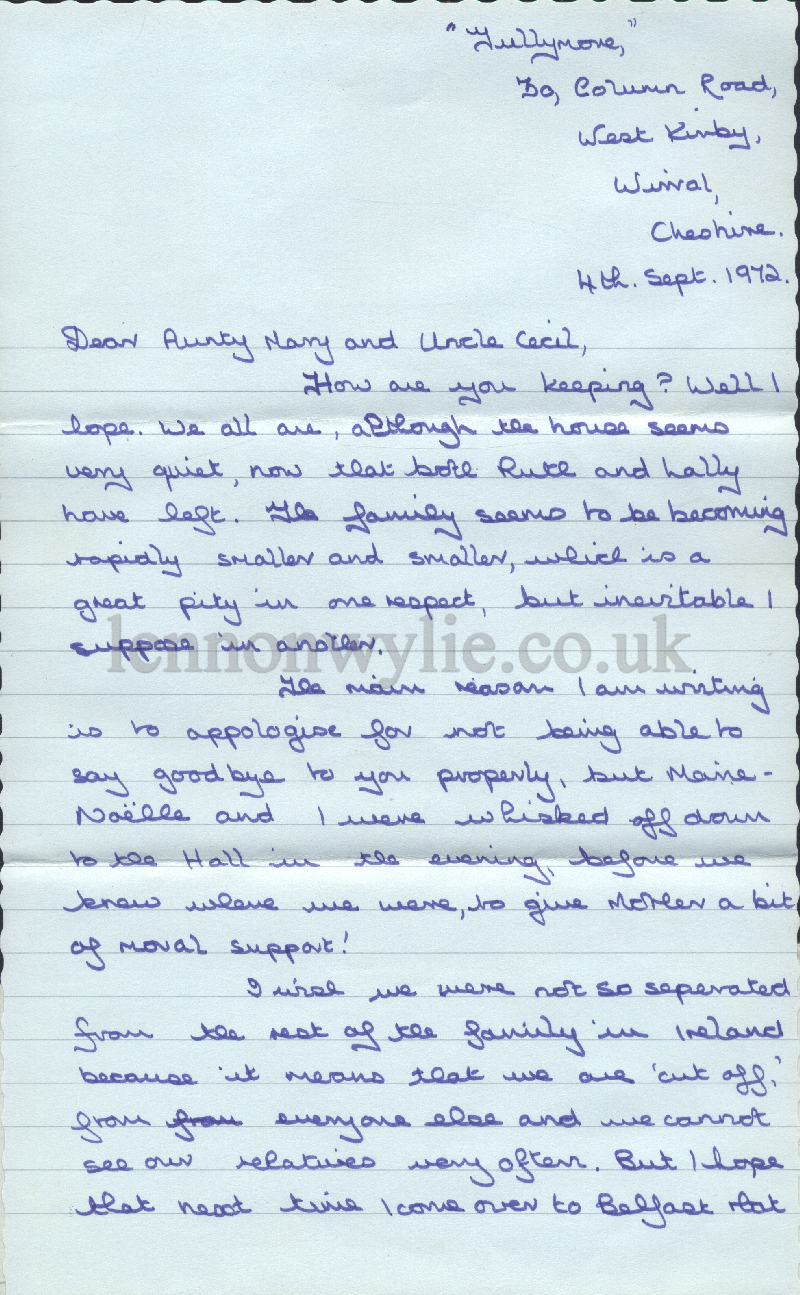 "Tullymore,"
70, Column Road,
West Kirby,
Wirral,
Cheshire.
4th. Sept. 1972.
Dear Aunty Mary and Uncle Cecil,
How are you keeping? Well I
hope. We all are, although the house seems
very quiet, now that both Ruth and Lally
have left. The family seems to be becoming
rapidly smaller and smaller, which is a
great pity in one respect, but inevitable I
suppose in another.
lennonwylie.co.uk
The main reason I am writing
is to appologise for not being able to
say goodbye to you properly, but Marie-
Noëlle and I were whisked off down
to the Hall in the evening, before we
knew where we were, to give Mother a bit
of moral support!
I wish we were not so seperated
from the rest of the family in Ireland
because it means that we are 'cut off,'
from from everyone else and we cannot
see our relatives very often. But I hope
that next time I come over to Belfast that